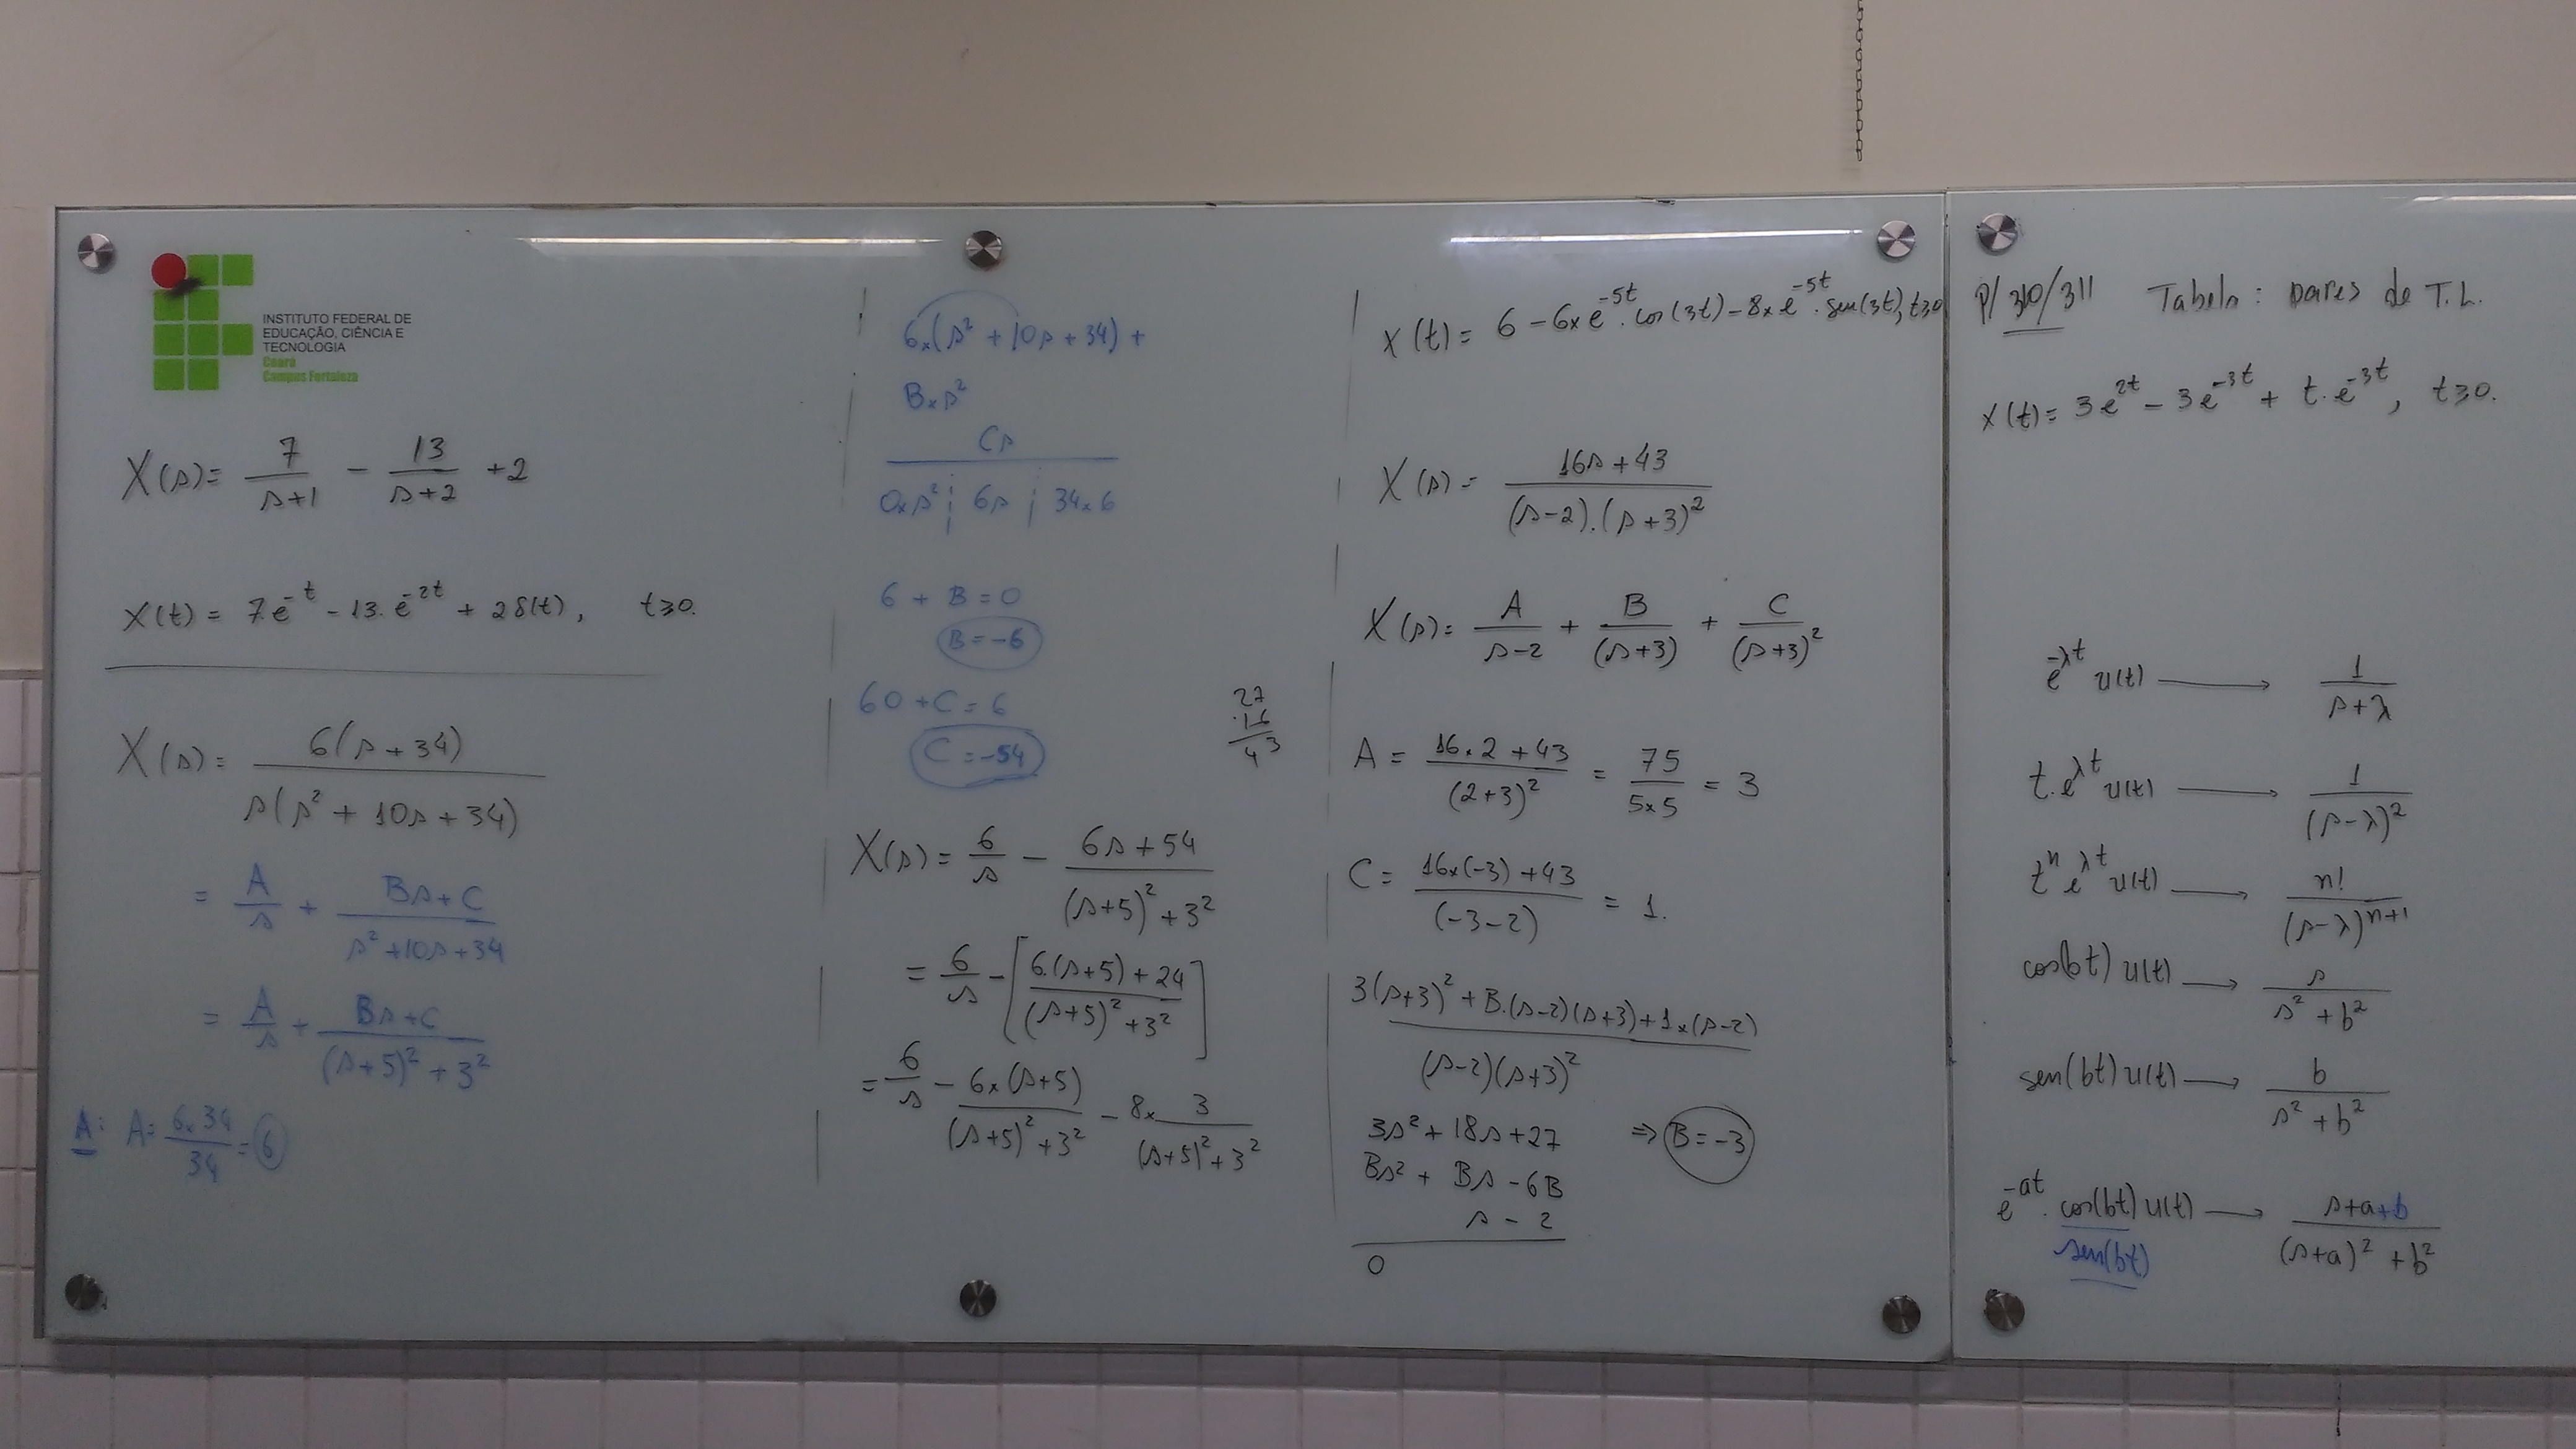 INSTITUTO FEDERAL DE
EDUCAÇÃO, CIÊNCIA E
TECNOLOGIA
Ceará
Campus Fortaleza
X(s) = 7/(s+1) - 13/(s+2) + 2
x(t) = 7.e^-t - 13.e^-2t + 2δ(t), t≥0.
X(s) = 6(s+34)/(s(s²+10s+34))
= A/s + (Bs+C)/(s²+10s+34)
= A/s + (Bs+C)/((s+5)²+3²)
A: A = 6x34/34 = 6
6x(s²+10s+34) +
Bxs²
Cs
0xs² ¦ 6s ¦ 34x6
6 + B = 0
B = -6
60 + C = 6
C = -54
X(s) = 6/s - (6s+54)/((s+5)²+3²)
= 6/s - [(6.(s+5)+24)/((s+5)²+3²)]
= 6/s - 6x(s+5)/((s+5)²+3²) - 8x 3/((s+5)²+3²)
27
16
43
x(t) = 6 - 6xe^-5t.cos(3t) - 8xe^-5t.sen(3t), t≥0
X(s) = (16s+43)/((s-2).(s+3)²)
X(s) = A/(s-2) + B/(s+3) + C/(s+3)²
A = (16x2+43)/(2+3)² = 75/5x5 = 3
C = (16x(-3)+43)/(-3-2) = 1.
3(s+3)² + B.(s-2)(s+3) + 1x(s-2)
(s-2)(s+3)²
3s² + 18s + 27 ⇒ B = -3
Bs² + Bs - 6B
s - 2
0
p/ 310/311 Tabela: Pares de T.L.
x(t) = 3e^2t - 3e^-3t + t.e^-3t, t≥0.
e^-λt u(t) → 1/(s+λ)
t.e^λt u(t) → 1/(s-λ)²
t^n e^λt u(t) → n!/(s-λ)^n+1
cos(bt) u(t) → s/(s²+b²)
sen(bt) u(t) → b/(s²+b²)
e^-at.cos(bt) u(t) → (s+a+b)/((s+a)²+b²)
sen(bt)